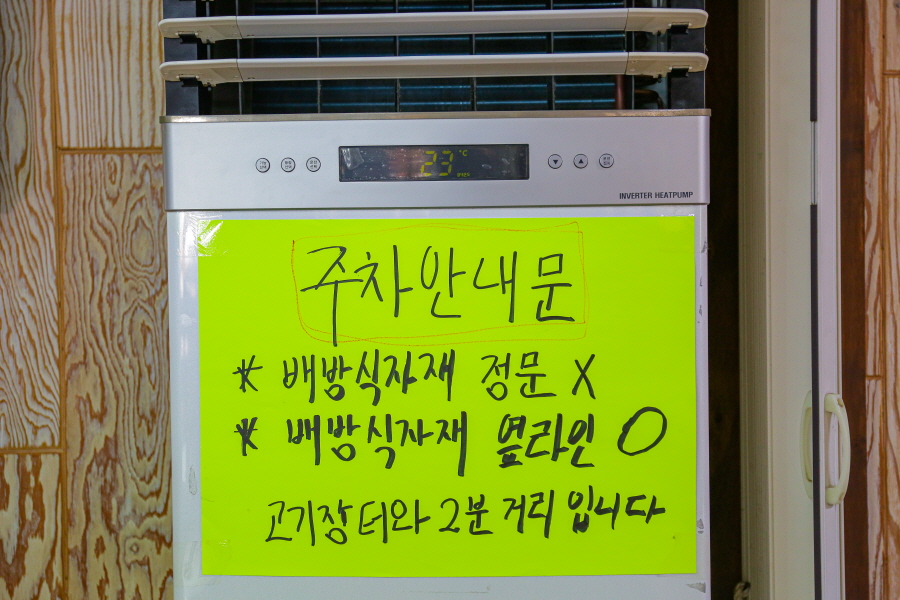 23 °C
INVERTER HEATPUMP
주차안내문
* 배방식자재 정문 X
* 배방식자재 옆라인 O
고기장터와 2분 거리 입니다